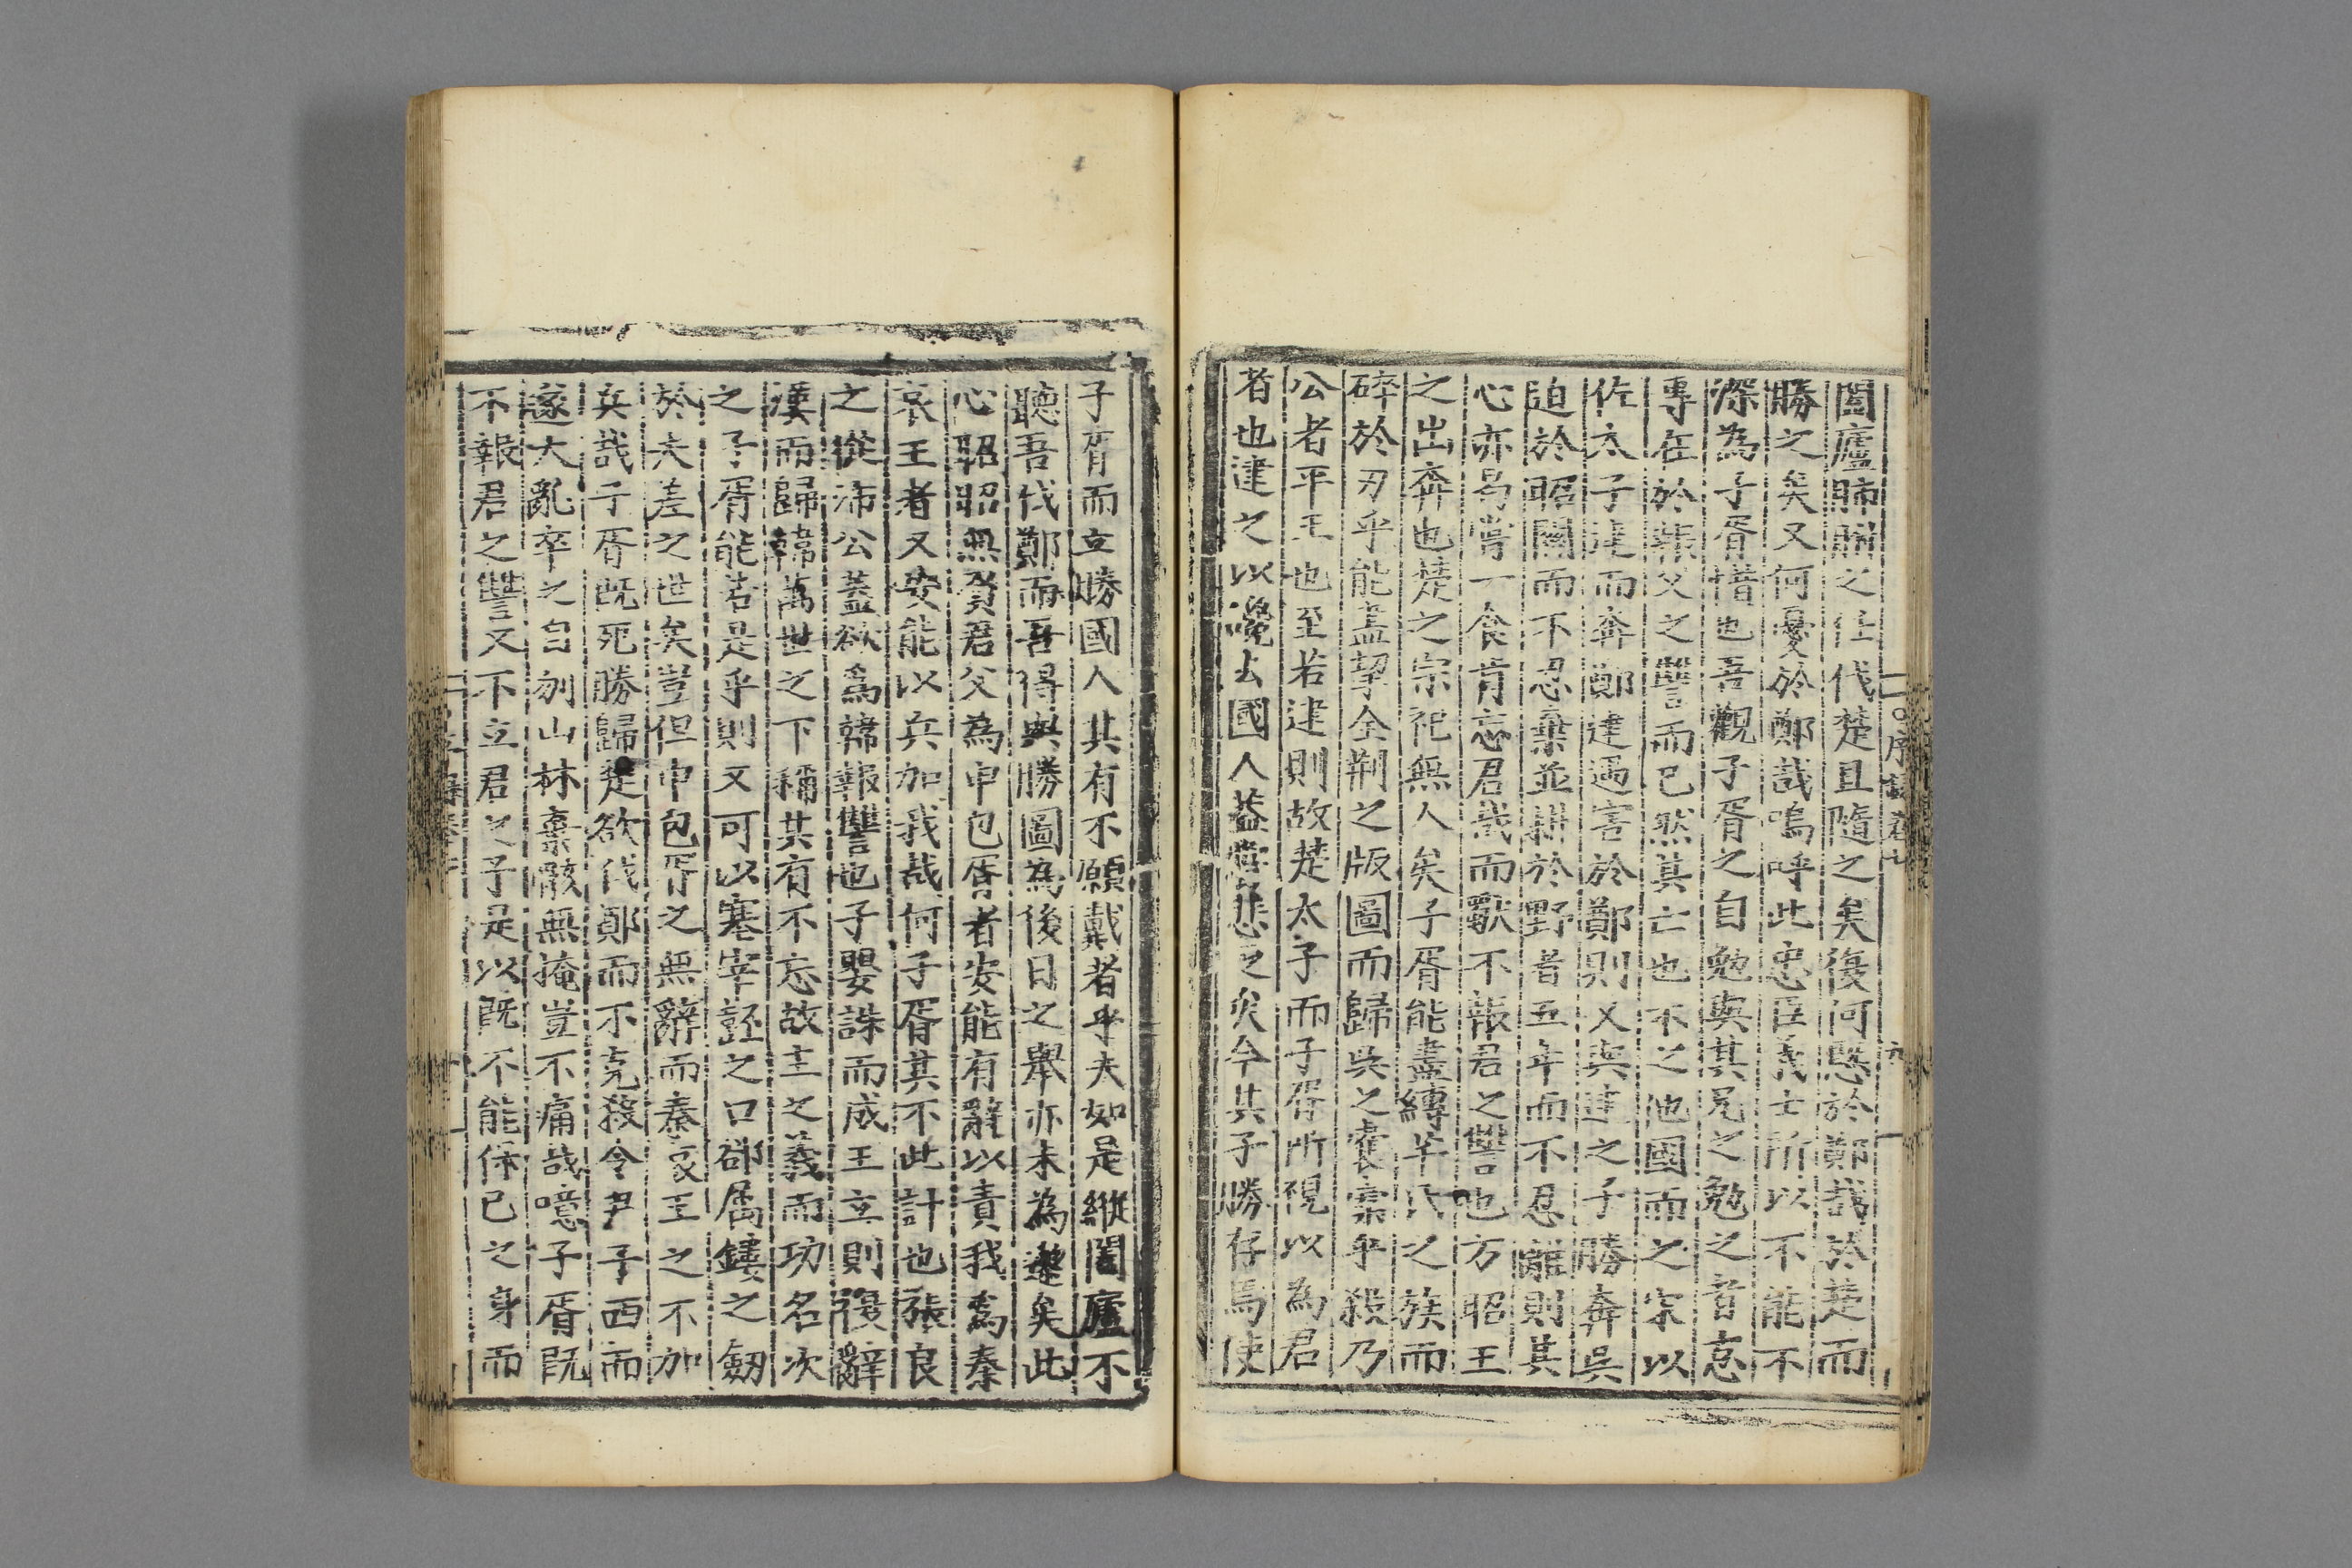 闔廬肺腑之任伐楚且隨之矣復何懸於鄭哉於楚而
勝之矣又何憂於鄭哉嗚呼此忠臣義士所以不能不
深為子胥惜也吾觀子胥之自勉與其兄之勉之者志
專在於報父之讐而已然其亡也不之他國而之宋以
佐太子建而奔鄭建遇害於鄭則又與建之子勝奔吳
迫於昭關而不忍棄並耕於野者五年而不忍離則其
心亦曷嘗一食肯忘君哉而獸不報君之讐也方昭王
之出奔也楚之宗祀無人矣子胥能盡縛羋氏之族而
碎於刃乎能盡挈全荆之版圖而歸吳之囊橐乎殺乃
公者平王也至若建則故楚太子而子胥所視以為君
者也建之以讒去國人蓋嘗悲之矣今其子勝存焉使
子胥而立勝國人其有不願戴者乎夫如是縱闔廬不
聽吾伐鄭而吾得與勝圖為後日之舉亦未為遲矣此
心昭昭無負君父為申包胥者安能有辭以責我為秦
哀王者又安能以兵加我哉何子胥其不此計也張良
之從沛公蓋欲為韓報讐也子嬰誅而成王立則復辭
漢而歸韓萬世之下稱其有不忘故主之義而功名次
之子胥能若是乎則又可以塞宰嚭之口郤屬鏤之劒
於夫差之世矣豈但申包胥之無辭而秦哀王之不加
兵哉子胥既死勝歸楚欲伐鄭而不克殺令尹子西而
遂大亂卒之自刎山林棄骸無掩豈不痛哉噫子胥既
不報君之讐又不立君之子是以既不能保已之身而